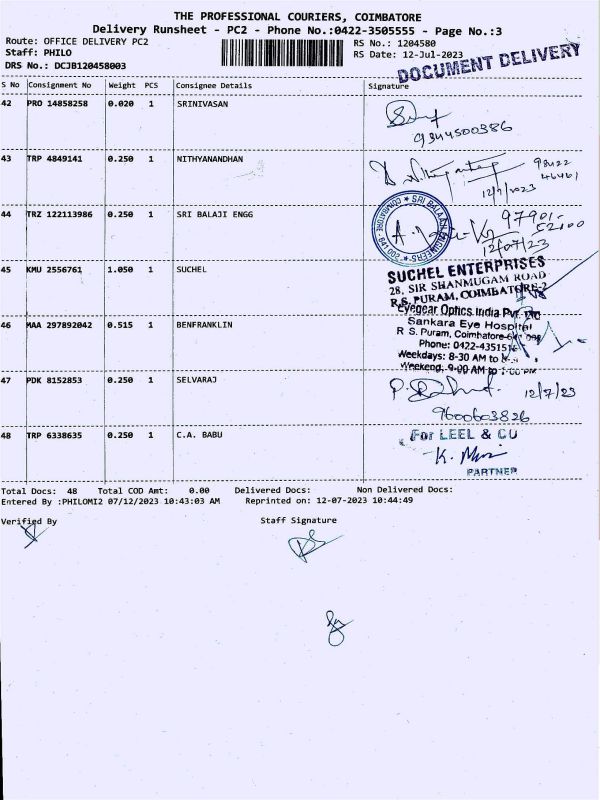 THE PROFESSIONAL COURIERS, COIMBATORE
Delivery Runsheet - PC2 - Phone No.:0422-3505555 - Page No.:3
Route: OFFICE DELIVERY PC2
RS No.: 1204580
Staff: PHILO
RS Date: 12-Jul-2023
DRS No.: DCJB120458003
DOCUMENT DELIVERY
S No Consignment No Weight PCS Consignee Details Signature
42 PRO 14858258 0.020 1 SRINIVASAN
9344500386
43 TRP 4849141 0.250 1 NITHYANANDHAN
98422
46461
12/7/2023
44 TRZ 122113986 0.250 1 SRI BALAJI ENGG
SRI BALAJI ENGINEERS
COIMBATORE - 641 001
97901-
52100
12/07/23
45 KMU 2556761 1.050 1 SUCHEL
SUCHEL ENTERPRISES
28, SIR SHANMUGAM ROAD
R.S. PURAM, COIMBATORE-2
46 MAA 297892042 0.515 1 BENFRANKLIN
Eyegear Optics India Pvt.
Sankara Eye Hospital
R S. Puram, Coimbatore
Phone: 0422-435151
Weekdays: 8-30 AM to
Weekend: 9-00 AM to
47 PDK 8152853 0.250 1 SELVARAJ
12/7/23
9600603826
48 TRP 6338635 0.250 1 C.A. BABU
For LEEL & CO
PARTNER
Total Docs: 48 Total COD Amt: 0.00 Delivered Docs: Non Delivered Docs:
Entered By :PHILOMI2 07/12/2023 10:43:03 AM Reprinted on: 12-07-2023 10:44:49
Verified By Staff Signature